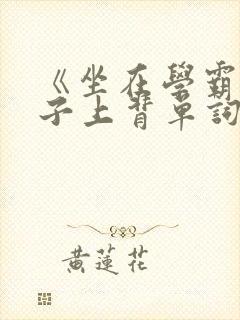 《坐在學霸
子上背單詞
黃蓮花